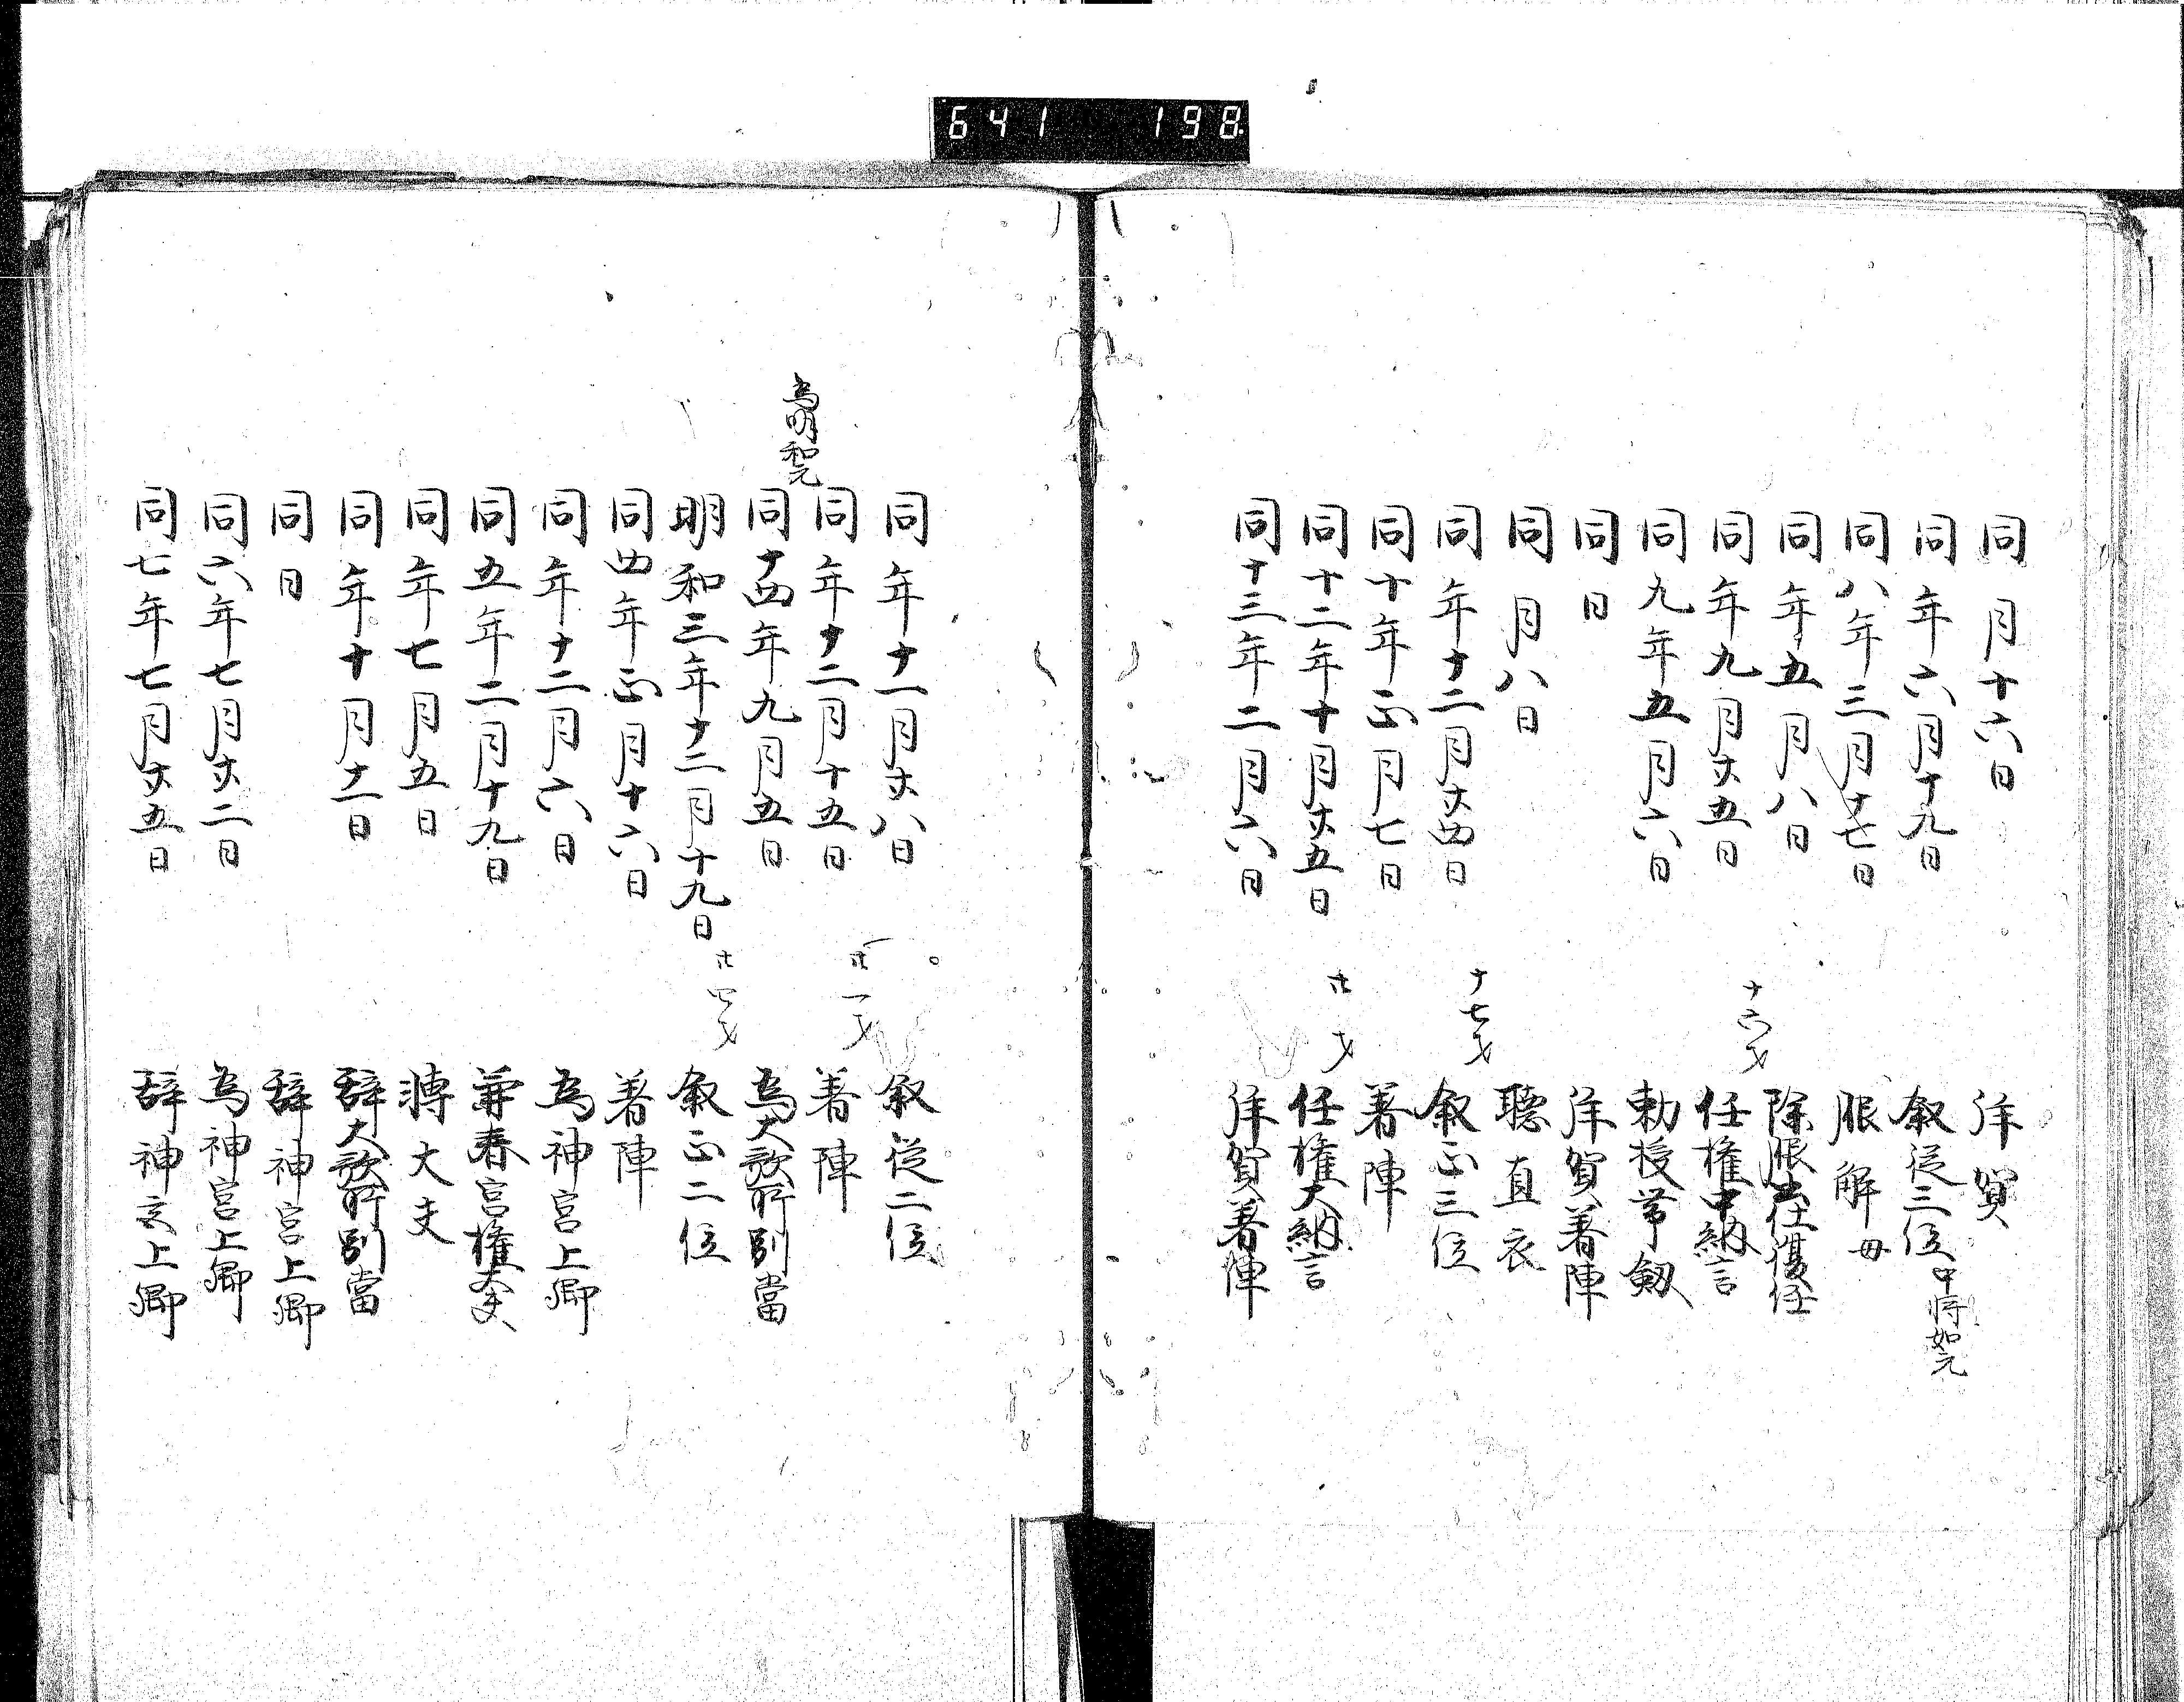 641 198
同月十六日 拝賀
同年六月十九日 叙従三位 中将如元
同八年三月十七日 服解 母
同年五月八日 除服出仕復任
同年九月廿五日 十六才 任権中納言
同九年五月六日 勅授帯剱
同日 拝賀著陣
同月八日 聴直衣
同年十二月廿四日 十七才 叙正三位
同十年正月七日 著陣
同十二年十月廿五日 廿才 任権大納言
同十三年二月六日 拝賀著陣
同年十一月廿八日 叙従二位
同年十二月十五日 廿一才 著陣
為明和元
同十四年九月五日 為大歌所別當
明和三年十二月十九日 廿四才 叙正二位
同四年正月十六日 著陣
同年十二月六日 為神宮上卿
同五年二月十九日 兼春宮権大夫
同年七月五日 轉大夫
同年十月十一日 辞大歌所別當
同日 辞神宮上卿
同六年七月廿二日 為神宮上卿
同七年七月廿五日 辞神宮上卿